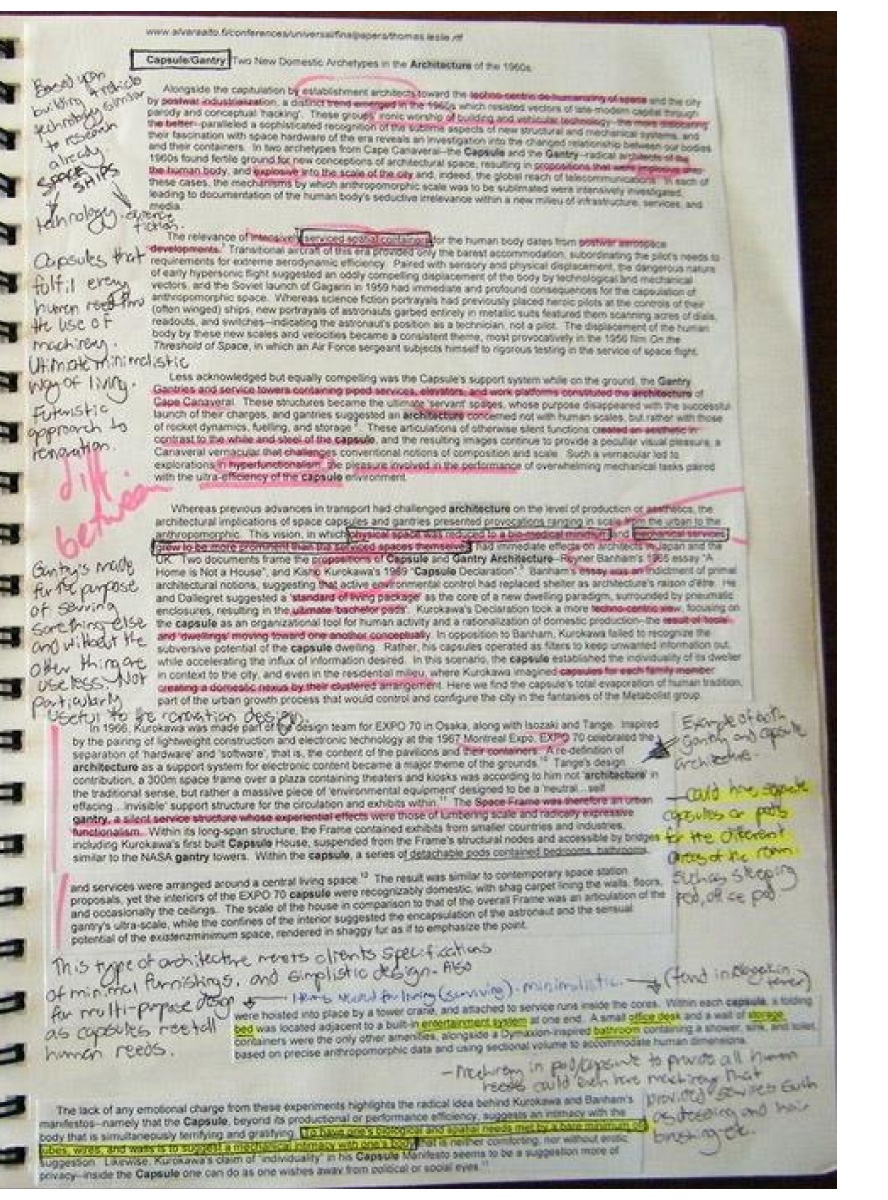 www.alvaraalto.fi/conferences/universal/finalpapers/thomas.leslie.rtf
Capsule/Gantry Two New Domestic Archetypes in the Architecture of the 1960s
Based upon
building + vehicle
technology similar
to research
already.
SPACE
SHIPS
technology. science
fiction.
Alongside the capitulation by establishment architects toward the techno-centric de-humanising of space and the city
by postwar industrialization, a distinct trend emerged in the 1960s which resisted vectors of late-modern capital through
parody and conceptual 'hacking'. These groups' ironic worship of building and vehicular technology- the more
the better--paralleled a sophisticated recognition of the sublime aspects of new structural and mechanical systems, and
their fascination with space hardware of the era reveals an investigation into the changed relationship between our bodies
and their containers. In two archetypes from Cape Canaveral--the Capsule and the Gantry--radical architects of the
1960s found fertile ground for new conceptions of architectural space, resulting in propositions that were
the human body, and explosive into the scale of the city and, indeed, the global reach of telecommunications. In each of
these cases, the mechanisms by which anthropomorphic scale was to be sublimated were intensively investigated,
leading to documentation of the human body's seductive irrelevance within a new milieu of infrastructure, services, and
media.
Capsules that
fulfil every
human need thru
the use of
machinery.
Ultimate minimalistic
way of living.
Futuristic
approach to
renovation.
The relevance of intensively serviced spatial containers for the human body dates from postwar aerospace
developments. Transitional aircraft of this era provided only the barest accommodation, subordinating the pilot's needs to
requirements for extreme aerodynamic efficiency. Paired with sensory and physical displacement, the dangerous nature
of early hypersonic flight suggested an oddly compelling displacement of the body by technological and mechanical
vectors, and the Soviet launch of Gagarin in 1959 had immediate and profound consequences for the capsulation of
anthropomorphic space. Whereas science fiction portrayals had previously placed heroic pilots at the controls of their
(often winged) ships, new portrayals of astronauts garbed entirely in metallic suits featured them scanning acres of dials,
readouts, and switches--indicating the astronaut's position as a technician, not a pilot. The displacement of the human
body by these new scales and velocities became a consistent theme, most provocatively in the 1956 film On the
Threshold of Space, in which an Air Force sergeant subjects himself to rigorous testing in the service of space flight.
Less acknowledged but equally compelling was the Capsule's support system while on the ground, the Gantry
Gantries and service towers containing piped services, elevators, and work platforms constituted the architecture of
Cape Canaveral. These structures became the ultimate 'servant' spaces, whose purpose disappeared with the successful
launch of their charges, and gantries suggested an architecture concerned not with human scales, but rather with those
of rocket dynamics, fuelling, and storage. These articulations of otherwise silent functions created an aesthetic in
contrast to the while and steel of the capsule, and the resulting images continue to provide a peculiar visual pleasure, a
Canaveral vernacular that challenges conventional notions of composition and scale. Such a vernacular led to
explorations in hyperfunctionalism, the pleasure involved in the performance of overwhelming mechanical tasks paired
with the ultra-efficiency of the capsule environment.
diff
between
Gantry's made
for the purpose
of serving
something else
and without the
other thing are
useless. Not
particularly
useful to the renovation design.
Whereas previous advances in transport had challenged architecture on the level of production or aesthetics, the
architectural implications of space capsules and gantries presented provocations ranging in scale from the urban to the
anthropomorphic. This vision, in which physical space was reduced to a bio-medical minimum and mechanical services
grew to be more prominent than the serviced spaces themselves had immediate effects on architects in Japan and the
UK. Two documents frame the propositions of Capsule and Gantry Architecture--Reyner Banham's 1965 essay "A
Home is Not a House", and Kisho Kurokawa's 1969 'Capsule Declaration'. Banham's essay was an of primal
architectural notions, suggesting that active environmental control had replaced shelter as architecture's raison d'être. He
and Dallegret suggested a 'standard of living package' as the core of a new dwelling paradigm, surrounded by pneumatic
enclosures, resulting in the ultimate 'bachelor pads'. Kurokawa's Declaration took a more techno-centric view, focusing on
the capsule as an organizational tool for human activity and a rationalization of domestic production--the result of 'tools'
and 'dwellings' moving toward one another conceptually. In opposition to Banham, Kurokawa failed to recognize the
subversive potential of the capsule dwelling. Rather, his capsules operated as filters to keep unwanted information out,
while accelerating the influx of information desired. In this scenario, the capsule established the individuality of its dweller
in context to the city, and even in the residential milieu, where Kurokawa imagined capsules for each family member
creating a domestic nexus by their clustered arrangement. Here we find the capsule's total evaporation of human tradition,
part of the urban growth process that would control and configure the city in the fantasies of the Metabolist group.
In 1966, Kurokawa was made part of the design team for EXPO 70 in Osaka, along with Isozaki and Tange. Inspired
by the pairing of lightweight construction and electronic technology at the 1967 Montreal Expo, EXPO 70 celebrated the
separation of 'hardware' and 'software', that is, the content of the pavilions and their containers. A re-definition of
architecture as a support system for electronic content became a major theme of the grounds.10 Tange's design
contribution, a 300m space frame over a plaza containing theaters and kiosks was according to him not 'architecture' in
the traditional sense, but rather a massive piece of 'environmental equipment' designed to be a 'neutral...self
effacing...invisible' support structure for the circulation and exhibits within.11 The Space Frame was therefore an urban
gantry, a silent service structure whose experiential effects were those of lumbering scale and radically expressive
functionalism. Within its long-span structure, the Frame contained exhibits from smaller countries and industries,
including Kurokawa's first built Capsule House, suspended from the Frame's structural nodes and accessible by bridges
similar to the NASA gantry towers. Within the capsule, a series of detachable pods contained bedrooms, bathrooms,
Example of both
gantry and capsule
architecture.
- could have separate
capsules or pods
for the different
areas of the room
such as sleeping
pod, office pod
and services were arranged around a central living space.12 The result was similar to contemporary space station
proposals, yet the interiors of the EXPO 70 capsule were recognizably domestic, with shag carpet lining the walls, floors,
and occasionally the ceilings. The scale of the house in comparison to that of the overall Frame was an articulation of the
gantry's ultra-scale, while the confines of the interior suggested the encapsulation of the astronaut and the sensual
potential of the existenzminimum space, rendered in shaggy fur as if to emphasize the point.
This type of architecture meets clients specifications
of minimal furnishings, and simplistic design. Also
for multi-purpose design
as capsules meet all
human needs.
Items needed for living (surviving). minimalistic. (found in tower)
were hoisted into place by a tower crane, and attached to service runs inside the cores. Within each capsule, a folding
bed was located adjacent to a built-in entertainment system at one end. A small office desk and a wall of storage
containers were the only other amenities, alongside a Dymaxion-inspired bathroom containing a shower, sink, and toilet,
based on precise anthropomorphic data and using sectional volume to accommodate human dimensions.
- Machinery in pod/capsule to provide all human
needs could even have machinery that
provided services such
as dressing and hair
brushing etc.
The lack of any emotional charge from these experiments highlights the radical idea behind Kurokawa and Banham's
manifestos--namely that the Capsule, beyond its productional or performance efficiency, suggests an intimacy with the
body that is simultaneously terrifying and gratifying. To have one's biological and spatial needs met by a bare minimum of
tubes, wires, and walls is to suggest a mechanical intimacy with one's body that is neither comforting, nor without erotic
suggestion. Likewise, Kurokawa's claim of 'individuality' in his Capsule Manifesto seems to be a suggestion more of
privacy--inside the Capsule one can do as one wishes away from political or social eyes.17